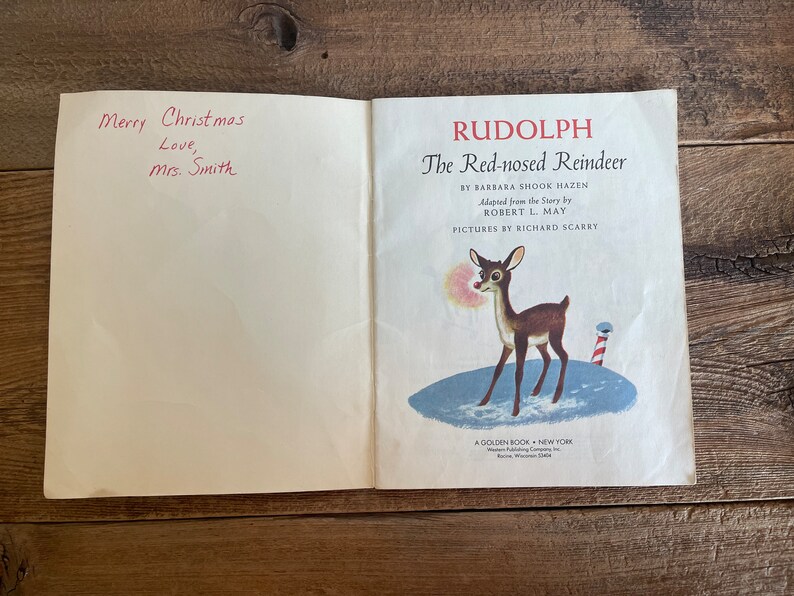 Merry Christmas
Love,
Mrs. Smith
RUDOLPH
The Red-nosed Reindeer
BY BARBARA SHOOK HAZEN
Adapted from the Story by
ROBERT L. MAY
PICTURES BY RICHARD SCARRY
A GOLDEN BOOK • NEW YORK
Western Publishing Company, Inc.
Racine, Wisconsin 53404